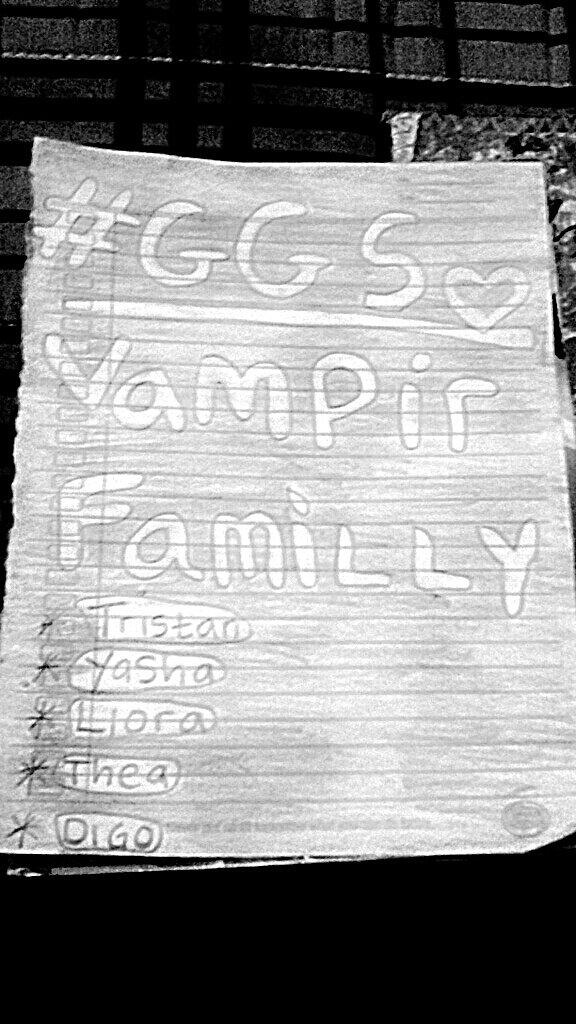 #GGS
Vampir
FamiLLY
* Tristan
* Yasha
* Liora
* Thea
* DIGO